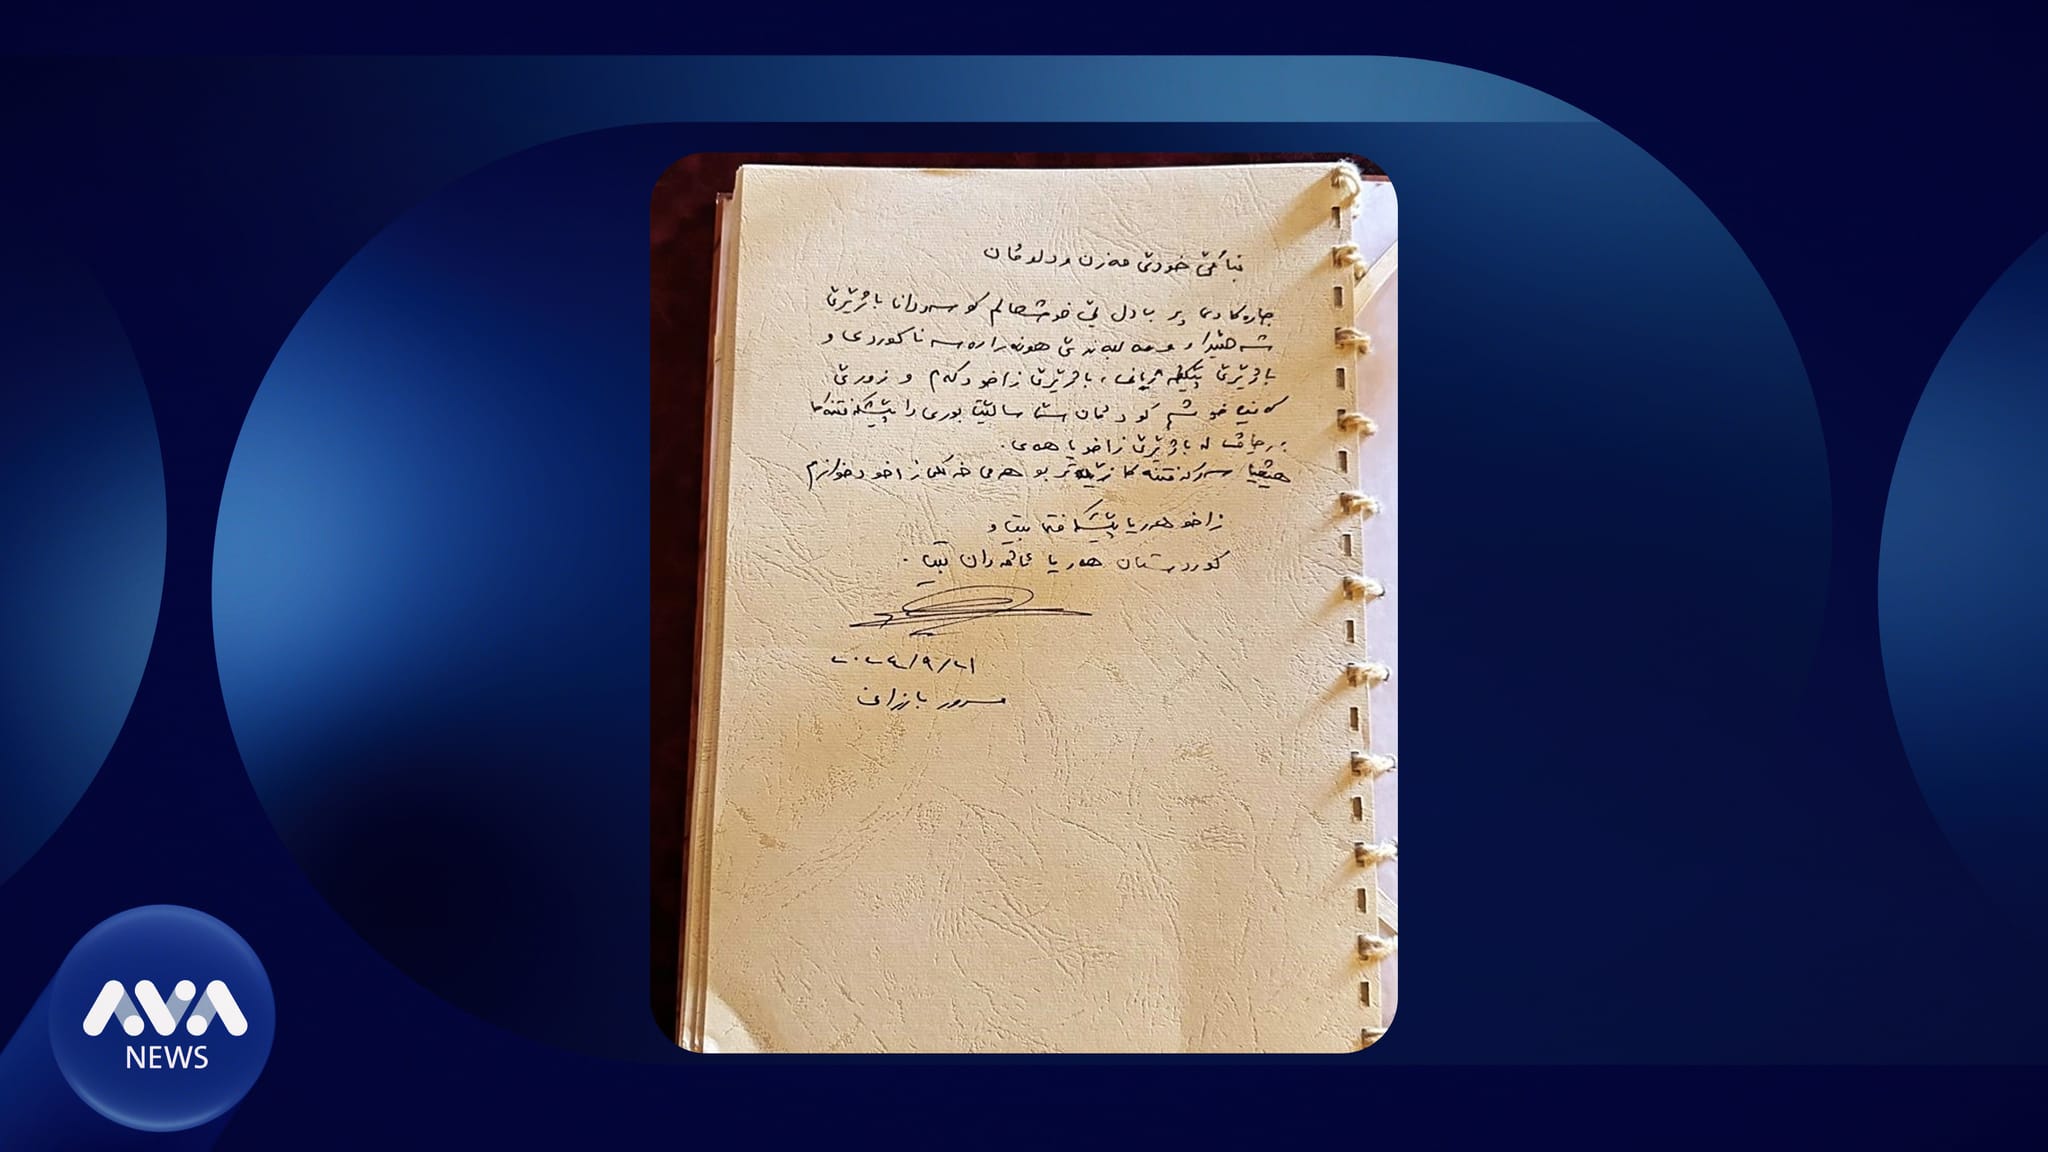 بناڤێ خودێ مەزن و دلوڤان
جارەکا دی پر ب دل خوشحالم کو سەردانا باژێرێ
شەهیدا و مەلبەندێ هونەرا رەسەنا کوردی و
باژێرێ پێکڤەژیانێ، باژێرێ زاخو دکەم و زورێ
کەیف خوشم کو دڤان سالێت بوری دا پێشکەفتنەکا
بەرچاڤ ل باژێرێ زاخو یا هەی.
هیڤیا سەرکەفتنەکا زێدەتر بو هەمی خەلکێ زاخو دخوازم
زاخو هەر یا پێشکەفتی بیت و
کوردستان هەر یا ئاڤەدان بیت.
٢٠٢٤/٩/٢١
مسرور بارزانی
AVA
NEWS